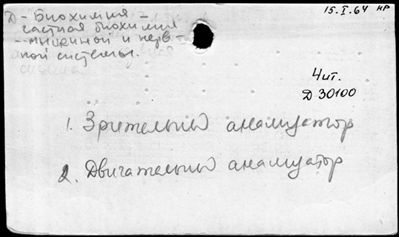 15.I.64 НР
Д - Биохимия -
частная биохимия
- мышечной и нерв -
ной системы.
Чит.
Д 30100
1. Зрительный анализатор
2. Двигательный анализатор